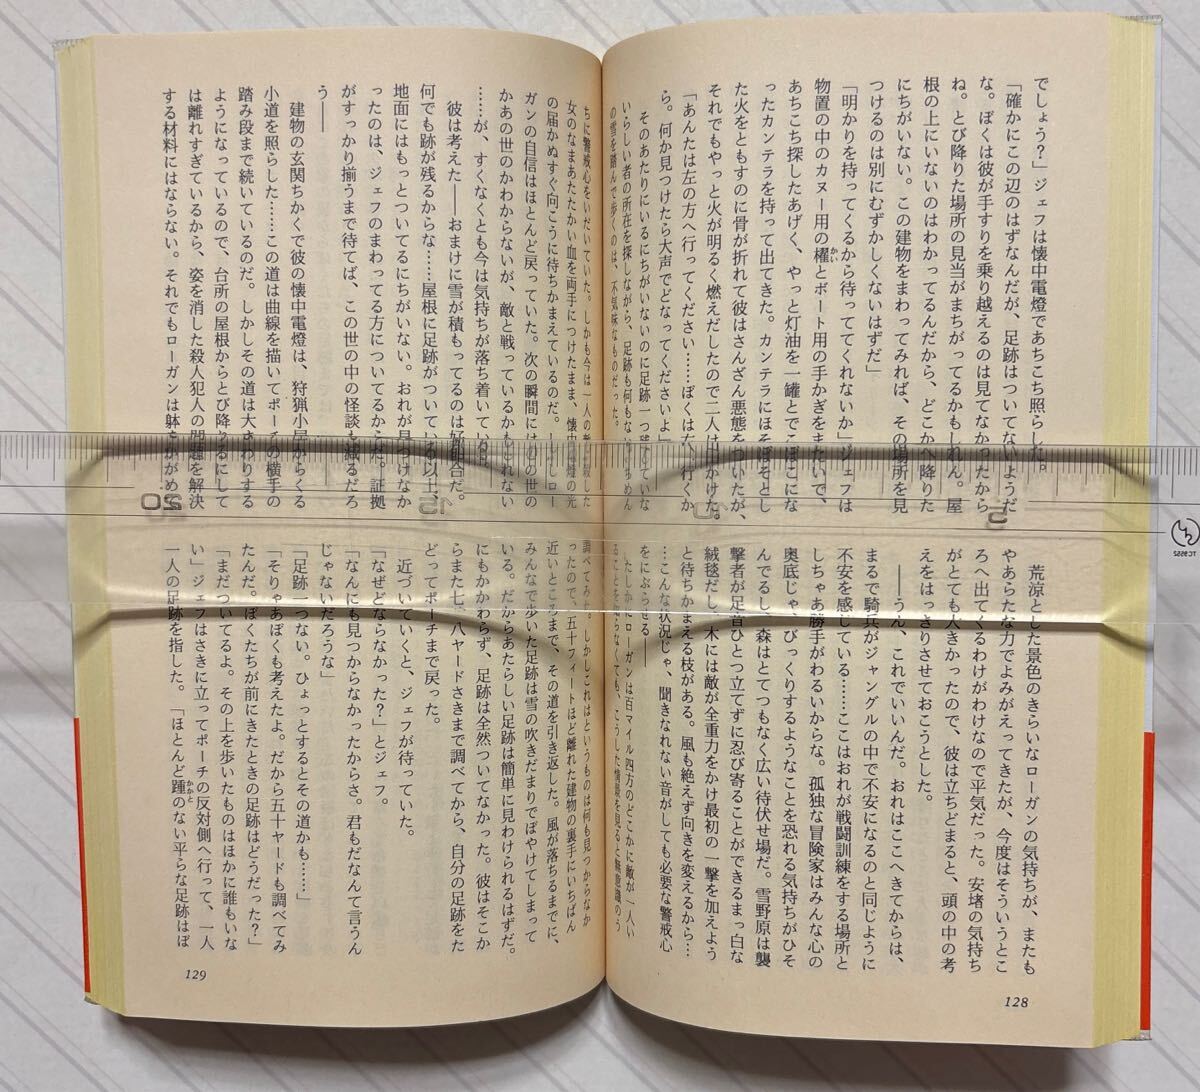 でしょう？」ジェフは懐中電燈であちこち照らした。
「確かにこの辺のはずなんだが、足跡はついてないようだ
な。ぼくは彼が手すりを乗り越えるのは見てなかったから
ね。とび降りた場所の見当がまちがってるかもしれん。屋
根の上にいないのはわかってるんだから、どこかへ降りた
にちがいない。この建物をまわってみれば、その場所を見
つけるのは別にむずかしくないはずだ」
「明かりを持ってくるから待っててくれないか」ジェフは
物置の中のカヌー用の櫂とボート用の手かぎをまたいで、
かい
あちこち探したあげく、やっと灯油を一罐とでこぼこにな
ったカンテラを持って出てきた。カンテラにほそぼそとし
た火をともすのに骨が折れて彼はさんざん悪態をついたが、
それでもやっと火が明るく燃えだしたので二人は出かけた。
「あんたは左の方へ行ってください……ぼくは右へ行くか
ら。何か見つけたら大声でどなってくださいよ」
そのあたりにいるにちがいないのに足跡一つ残していな
いらしい者の所在を探しながら、足跡も何もない
の雪を踏んで歩くのは、不気味なものだった。
荒涼とした景色のきらいなローガンの気持ちが、またも
やあらたな力でよみがえってきたが、今度はそういうとこ
ろへ出てくるわけがわけなので平気だった。安堵の気持ち
がとても大きかったので、彼は立ちどまると、頭の中の考
えをはっきりさせておこうとした。
――うん、これでいいんだ。おれはここへきてからは、
まるで騎兵がジャングルの中で不安になるのと同じように
不安を感じている……ここはおれが戦闘訓練をする場所と
しちゃあ勝手がわるいからな。孤独な冒険家はみんな心の
奥底じゃ、びっくりするようなことを恐れる気持ちがひそ
んでるし、森はとてつもなく広い待伏せ場だ。雪野原は襲
撃者が足音ひとつ立てずに忍び寄ることができるまっ白な
絨毯だし、木には敵が全重力をかけ最初の一撃を加えよう
と待ちかまえる枝がある。風も絶えず向きを変えるから…
…こんな状況じゃ、聞きなれない音がしても必要な警戒心
をにぶらせる――
たしかにローガンは百マイル四方のどこかに敵が一人い
ることを知らなくても、こうした情景を見ると無意識のう
128
ちに警戒心をいだいていた。しかも今は一人の
女のなまあたたかい血を両手につけたまま、懐中電燈の光
の届かぬすぐ向こうに待ちかまえているのだ。しかしロー
ガンの自信はほとんど戻っていた。次の瞬間にはこの世の
かあの世のかわからないが、敵と戦っているかもしれない
……が、すくなくとも今は気持ちが落ち着いている。
彼は考えた――おまけに雪が積もってるのは好都合だ。
何でも跡が残るからな……屋根に足跡がついている以上、
地面にはもっとついてるにちがいない。おれが見つけなか
ったのは、ジェフのまわってる方についてるからだ。証拠
がすっかり揃うまで待てば、この世の中の怪談も減るだろ
う――
建物の玄関ちかくで彼の懐中電燈は、狩猟小屋からくる
小道を照らした……この道は曲線を描いてポーチの横手の
踏み段まで続いているのだ。しかしその道は大まわりする
ようになっているので、台所の屋根からとび降りるにして
は離れすぎているから、姿を消した殺人犯人の問題を解決
する材料にはならない。それでもローガンは躰をかがめて
調べてみた。しかしこれはというものは何も見つからなか
ったので、五十フィートほど離れた建物の裏手にいちばん
近いところまで、その道を引き返した。風が落ちるまでに、
みんなで歩いた足跡は雪の吹きだまりでぼやけてしまって
いる。だからあたらしい足跡は簡単に見わけられるはずだ。
にもかかわらず、足跡は全然ついてなかった。彼はそこか
らまた七、八ヤードさきまで調べてから、自分の足跡をた
どってポーチまで戻った。
近づいていくと、ジェフが待っていた。
「なぜどならなかった？」とジェフ。
「なんにも見つからなかったからさ。君もだなんて言うん
じゃないだろうな」
「足跡一つない。ひょっとするとその道かも……」
「そりゃあぼくも考えたよ。だから五十ヤードも調べてみ
たんだ。ぼくたちが前にきたときの足跡はどうだった？」
「まだついてるよ。その上を歩いたものはほかに誰もいな
い」ジェフはさきに立ってポーチの反対側へ行って、一人
一人の足跡を指した。「ほとんど踵のない平らな足跡はぼ
かかと
129
5
10
15
20
TC9552